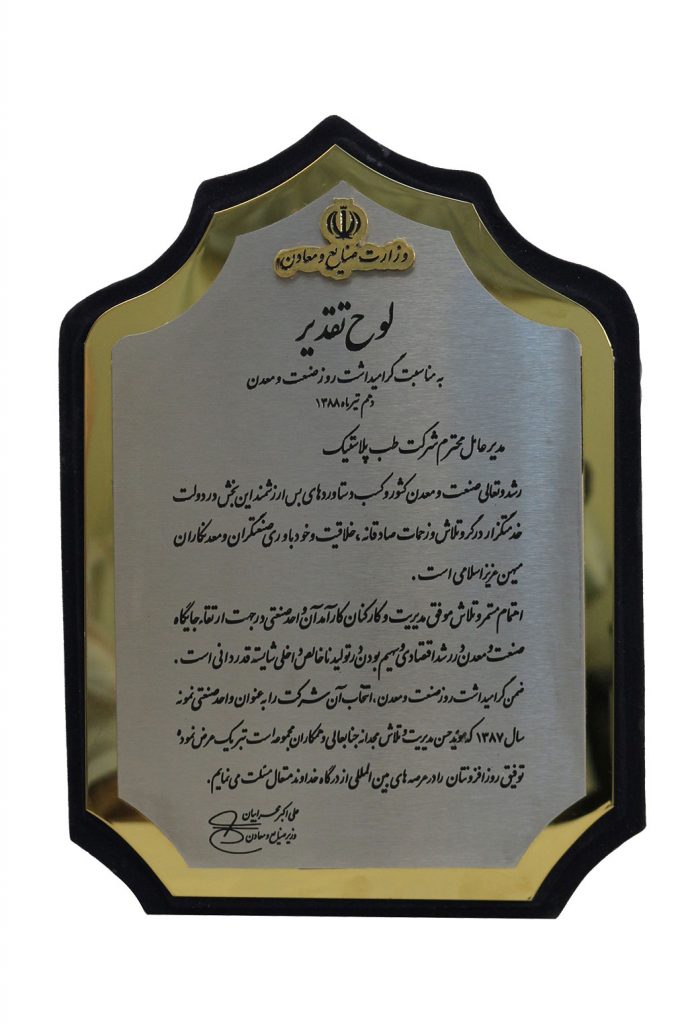 وزارت صنایع و معادن
لوح تقدیر
به مناسبت گرامیداشت روز صنعت و معدن
دهم تیرماه ۱۳۸۸
مدیر عامل محترم شرکت طب پلاستیک
رشد و تعالی صنعت و معدن کشور و کسب دستاوردهای بس ارزشمند این بخش در دولت
خدمتگزار در گرو تلاش و زحمات صادقانه ، خلاقیت و خودباوری صنعتگران و معدنکاران
میهن عزیز اسلامی است .
اهتمام مستمر و تلاش موفق مدیریت و کارکنان کارآمد آن واحد صنعتی در جهت ارتقاء جایگاه
صنعت و معدن در رشد اقتصادی و سهیم بودن در تولید ناخالص داخلی شایسته قدردانی است .
ضمن گرامیداشت روز صنعت و معدن ، انتخاب آن شرکت را به عنوان واحد صنعتی نمونه
سال ۱۳۸۷ که موید حسن مدیریت و تلاش مجدانه جنابعالی و همکاران مجموعه است تبریک عرض نموده
توفیق روزافزونتان را در عرصه های بین المللی از درگاه خداوند متعال مسئلت می نمایم.
علی اکبر محرابیان
وزیر صنایع و معادن